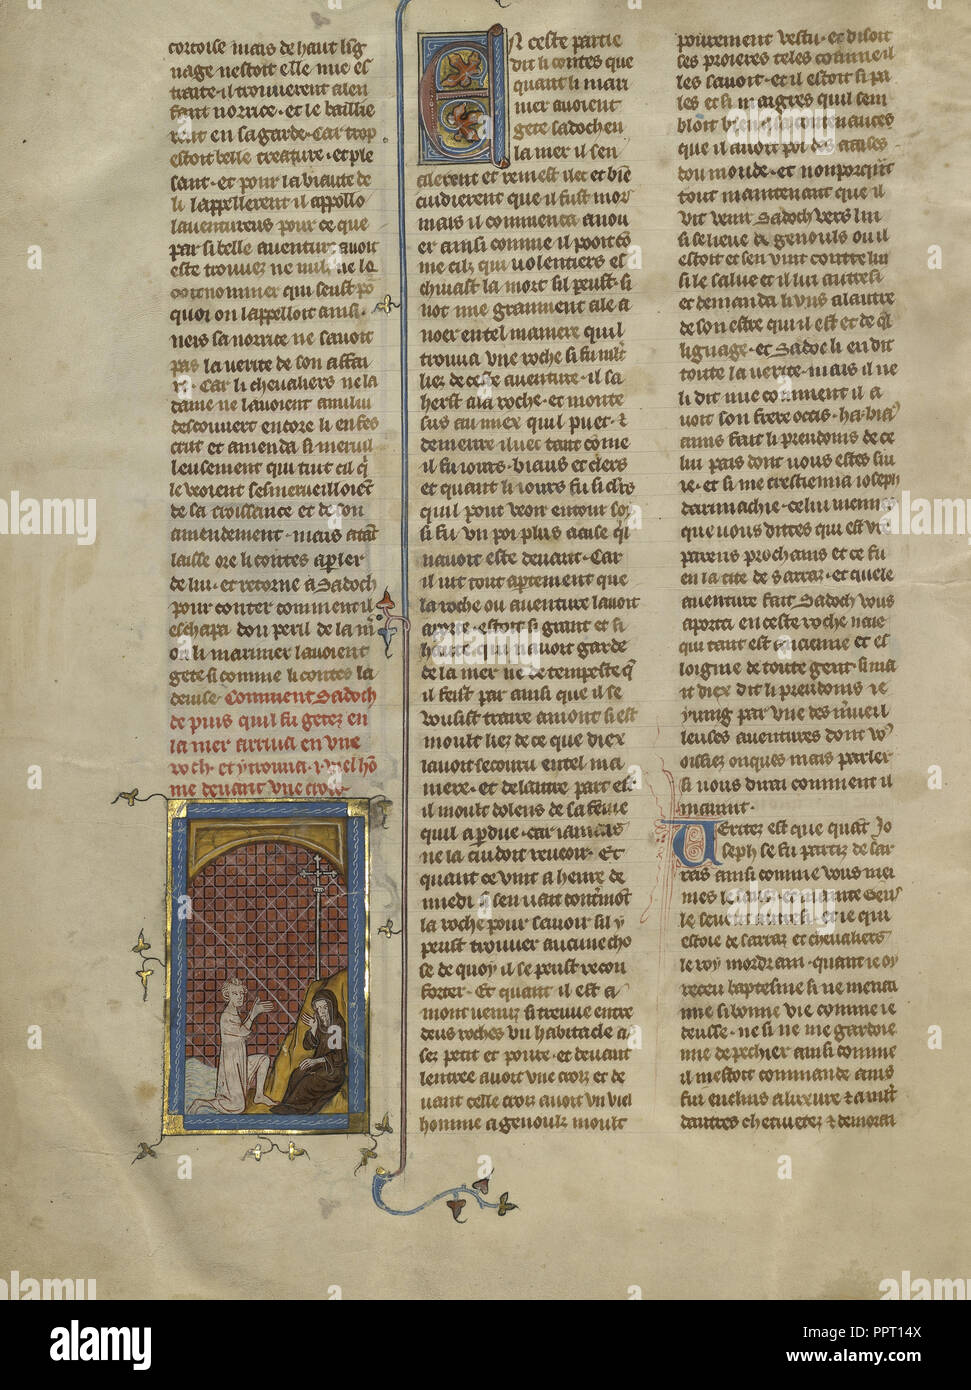 cortoise mais de haut lig
nage nestoit elle mie es
traite il trouuerent a len
fant norrice et le baillie
rent en sa garde Car trop
estoit belle creature et ple
sant et pour la biaute de
li lappellerent il appollo
lauentureus pour ce que
par si belle auenture auoit
este trouuez ne nulz ne le
nommer qui seust po
quoi on lappelloit ainsi
neis sa norrice ne sauoit
pas la verite de son affai
re Car li cheualiers ne la
dame ne lauoient a nului
descouuert encore li enfes
crut et amenda si merueil
leusement que tuit cil q̄
le veoient sesmerueilloient
de sa croissance et de son
amendement mais atāt
laisse ore li contes a parler
de lui et retorne a Sadoch
pour conter comment il
eschapa dou peril de la mer
ou li marinier lauoient
gete si comme li contes la
deuise Comment Sadoch
de puis quil fu getez en
la mer arriua en vne
roche et y trouua i viel hō
me deuant vne croiz
EN ceste partie
dit li contes que
quant li mari
nier auoient
gete sadoch en
la mer il sen
alerent et remest ilec et biē
cuidierent que il fust mors
mais il commenca a nou
er ainsi comme il pooit cō
me cilz qui volentiers es
chiuast la mort sil peust si
not mie granment ale a
noer en tel maniere quil
trouua vne roche si fu mlt
liez de ceste auenture il sa
herst a la roche et monte
sus au miex quil puet et
demeure iluec tant cōme
il fu iours biaus et clers
et quant li iours fu si clers
quil pout veoir entour soy
si fu vn poi plus a aise quil
nauoit este deuant Car
il vit tout apertement que
la roche ou auenture lauoit
aporte estoit si grant et si
haute qui nauoit garde
de la mer ne de tempeste q̄
il feist par ainsi que il se
vousist traire amont si est
moult liez de ce que diex
lauoit secouru en tel ma
niere et delautre part est
il moult dolens de sa feme
quil a perdue car iamais
ne la cuidoit reueoir Et
quant ce vint a heure de
miedi si sen vait contremōt
la roche pour sauoir sil y
peust trouuer aucune cho
se de quoy il se peust recon
forter Et quant il est a
mont venuz si treuue entre
deus roches vn habitacle as
sez petit et poure et deuant
lentree auoit vne croiz et de
uant celle croiz auoit vn viel
homme a genoulz moult
pourement vestu et disoit
ses proieres teles comme il
les sauoit et il estoit si pa
les et si maigres quil sem
bloit bien a sa contenances
que il auoit poi des aaises
dou monde et nonporqūt
tout maintenant que il
vit venir Sadoch vers lui
si se lieue de genouls ou il
estoit et sen vint contre lui
si le salue et il lui autresi
et demanda li vns a lautre
de son estre qui il est et de q̄l
liguage et Sadoc li en dit
toute la verite mais il ne
li dit mie comment il a
uoit son frere occis ha biaꝰ
amis fait li preudoms de ce
lui pais dont vous estes sui
ie et si me crestienna ioseph
darimachie celui meimes
que vous dittes qui est vre
parens prochains et ce fu
en la cite de Sarraz et quele
auenture fait Sadoch vous
aporta en ceste roche naie
qui tant est ancienne et es
loigne de toute gent si ma
it diex dit li preudoms ie
y ving par vne des merueil
leuses auentures dont vo
oissiez onques mais parler
si vous dirai comment il
mauint
Veritez est que quāt Jo
seph se fu partiz de sar
ras ainsi comme vous mei
mes le sauez et mainte gens
le seuent autresi et ie qui
estoie de sarraz et cheualiers
le roy mordrain quant ie oy
receu baptesme si ne menai
mie si bonne vie comme ie
deusse ne si ne me gardoie
mie de pechier ainsi comme
il mestoit commande ainis
fui enclins a luxure et a mlt
dautres chetiuetez et demorai